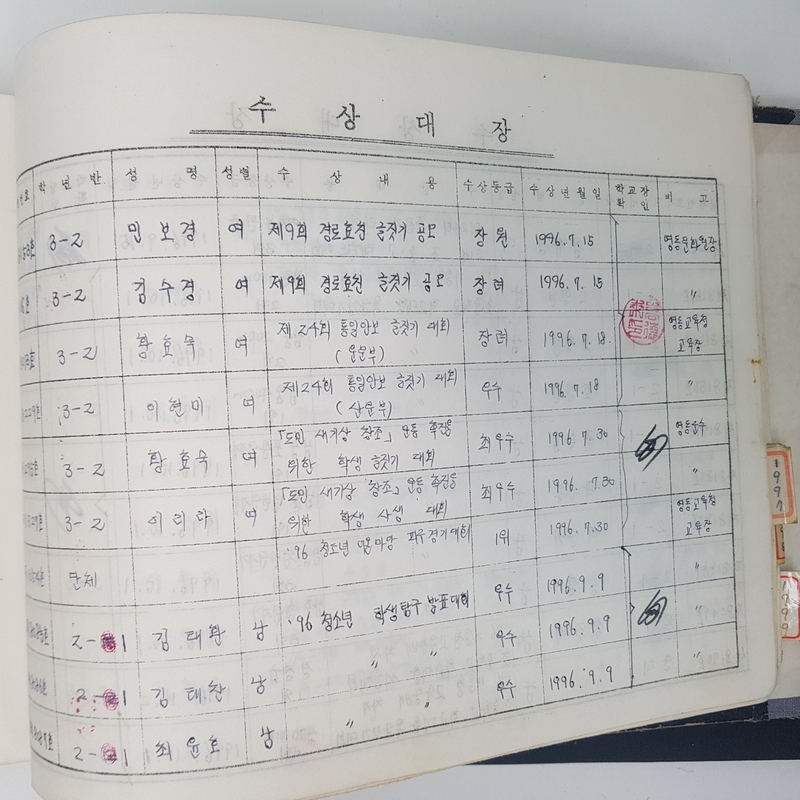 수 상 대 장
학 년 반 성 명 성별 수 상 내 용 수상등급 수상년월일 학교장 확인 비 고
3-2 민보경 여 제9회 경로효친 글짓기 공모 장원 1996.7.15 영동문화원장
3-2 김수경 여 제9회 경로효친 글짓기 공모 장려 1996.7.15 〃
3-2 황효숙 여 제24회 통일안보 글짓기 대회 장려 1996.7.18. 영동교육청
(운문부) 교육장
3-2 이현미 여 제24회 통일안보 글짓기 대회 우수 1996.7.18 〃
(산문부)
3-2 황효숙 여 「도민 새기상 창조」 운동 촉진을 최우수 1996.7.30 영동군수
위한 학생 글짓기 대회
3-2 이리라 여 「도민 새기상 창조」 운동 촉진을 최우수 1996.7.30 〃
위한 학생 사생 대회
단체 '96 청소년 대회 1위 1996.7.30 영동교육청
교육장
2-1 김태환 남 '96 청소년 학생탐구 발표대회 우수 1996.9.9 〃
2-1 김태찬 남 〃 〃 우수 1996.9.9 〃
2-1 최윤호 남 〃 〃 우수 1996.9.9 〃
1997
1999